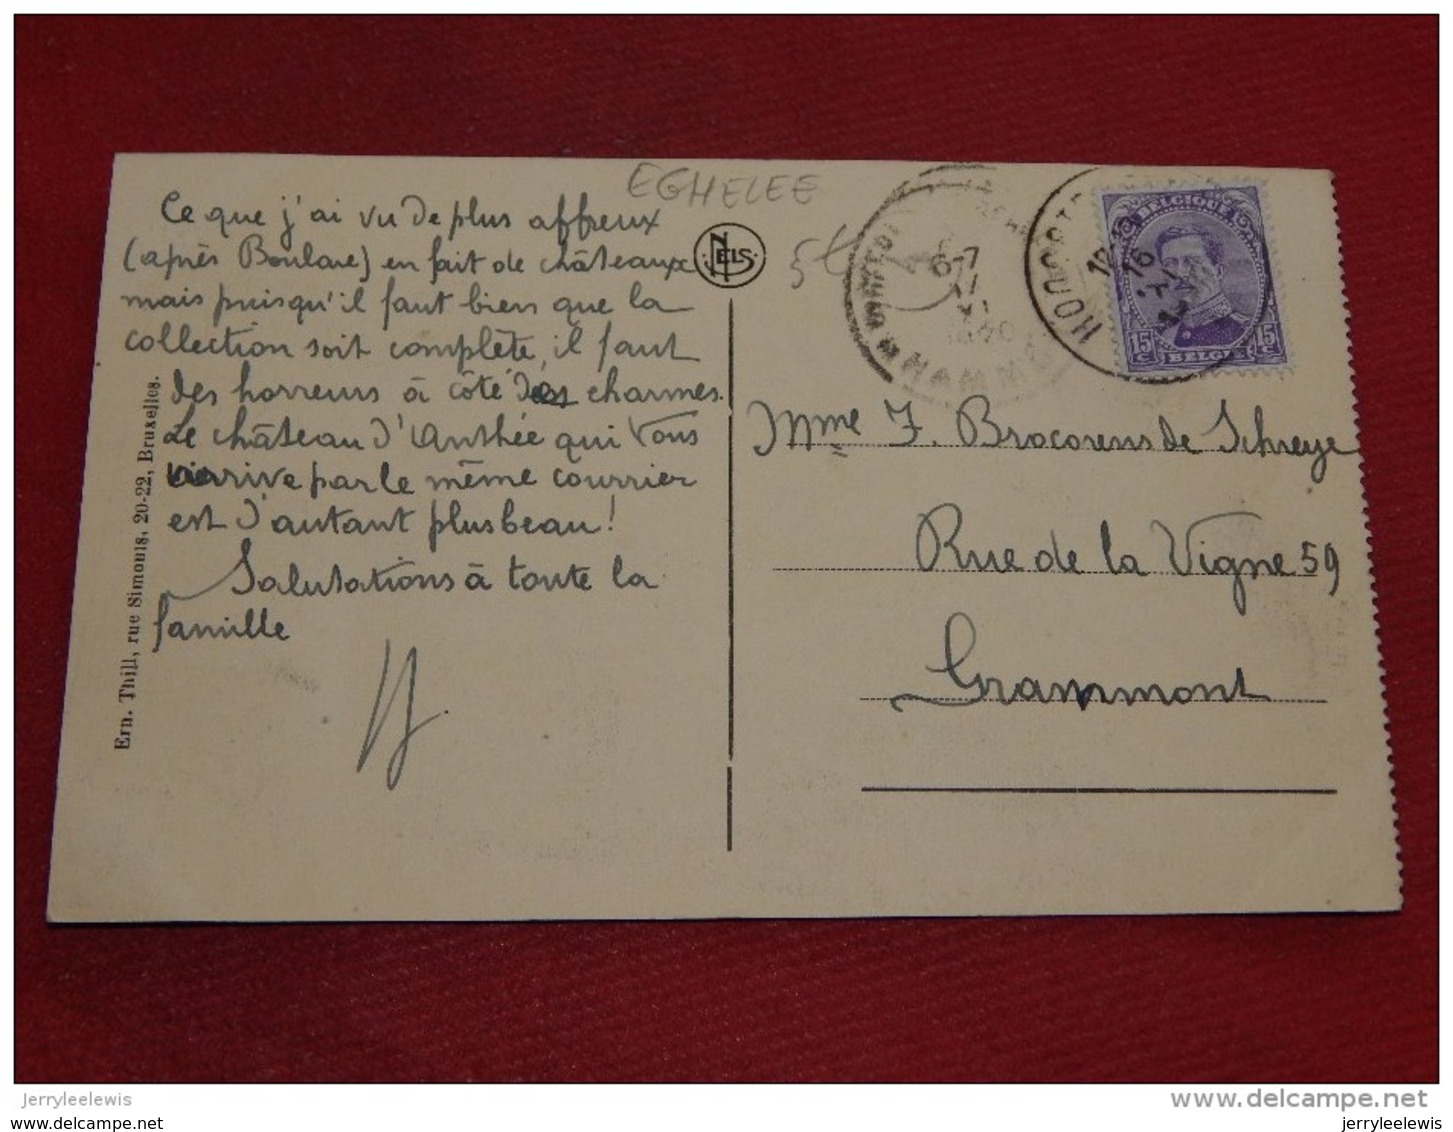 EGHELEE
Ce que j'ai vu de plus affreux
(après Boulare) en fait de châteaux
mais puisqu'il faut bien que la
collection soit complète, il faut
des horreurs à côté des charmes.
Le château d'Anthée qui vous
arrive par le même courrier
est d'autant plus beau!
Salutations à toute la
famille
Ern. Thill, rue Simonis, 20-22, Bruxelles.
NELS
6-7
BELGIQUE
15c 15c
BELGIE
Mme J. Brocorens de Schreye
Rue de la Vigne 59
Grammont
jerryleelewis
www.delcampe.net
jerryleelewis
jerryleelewis